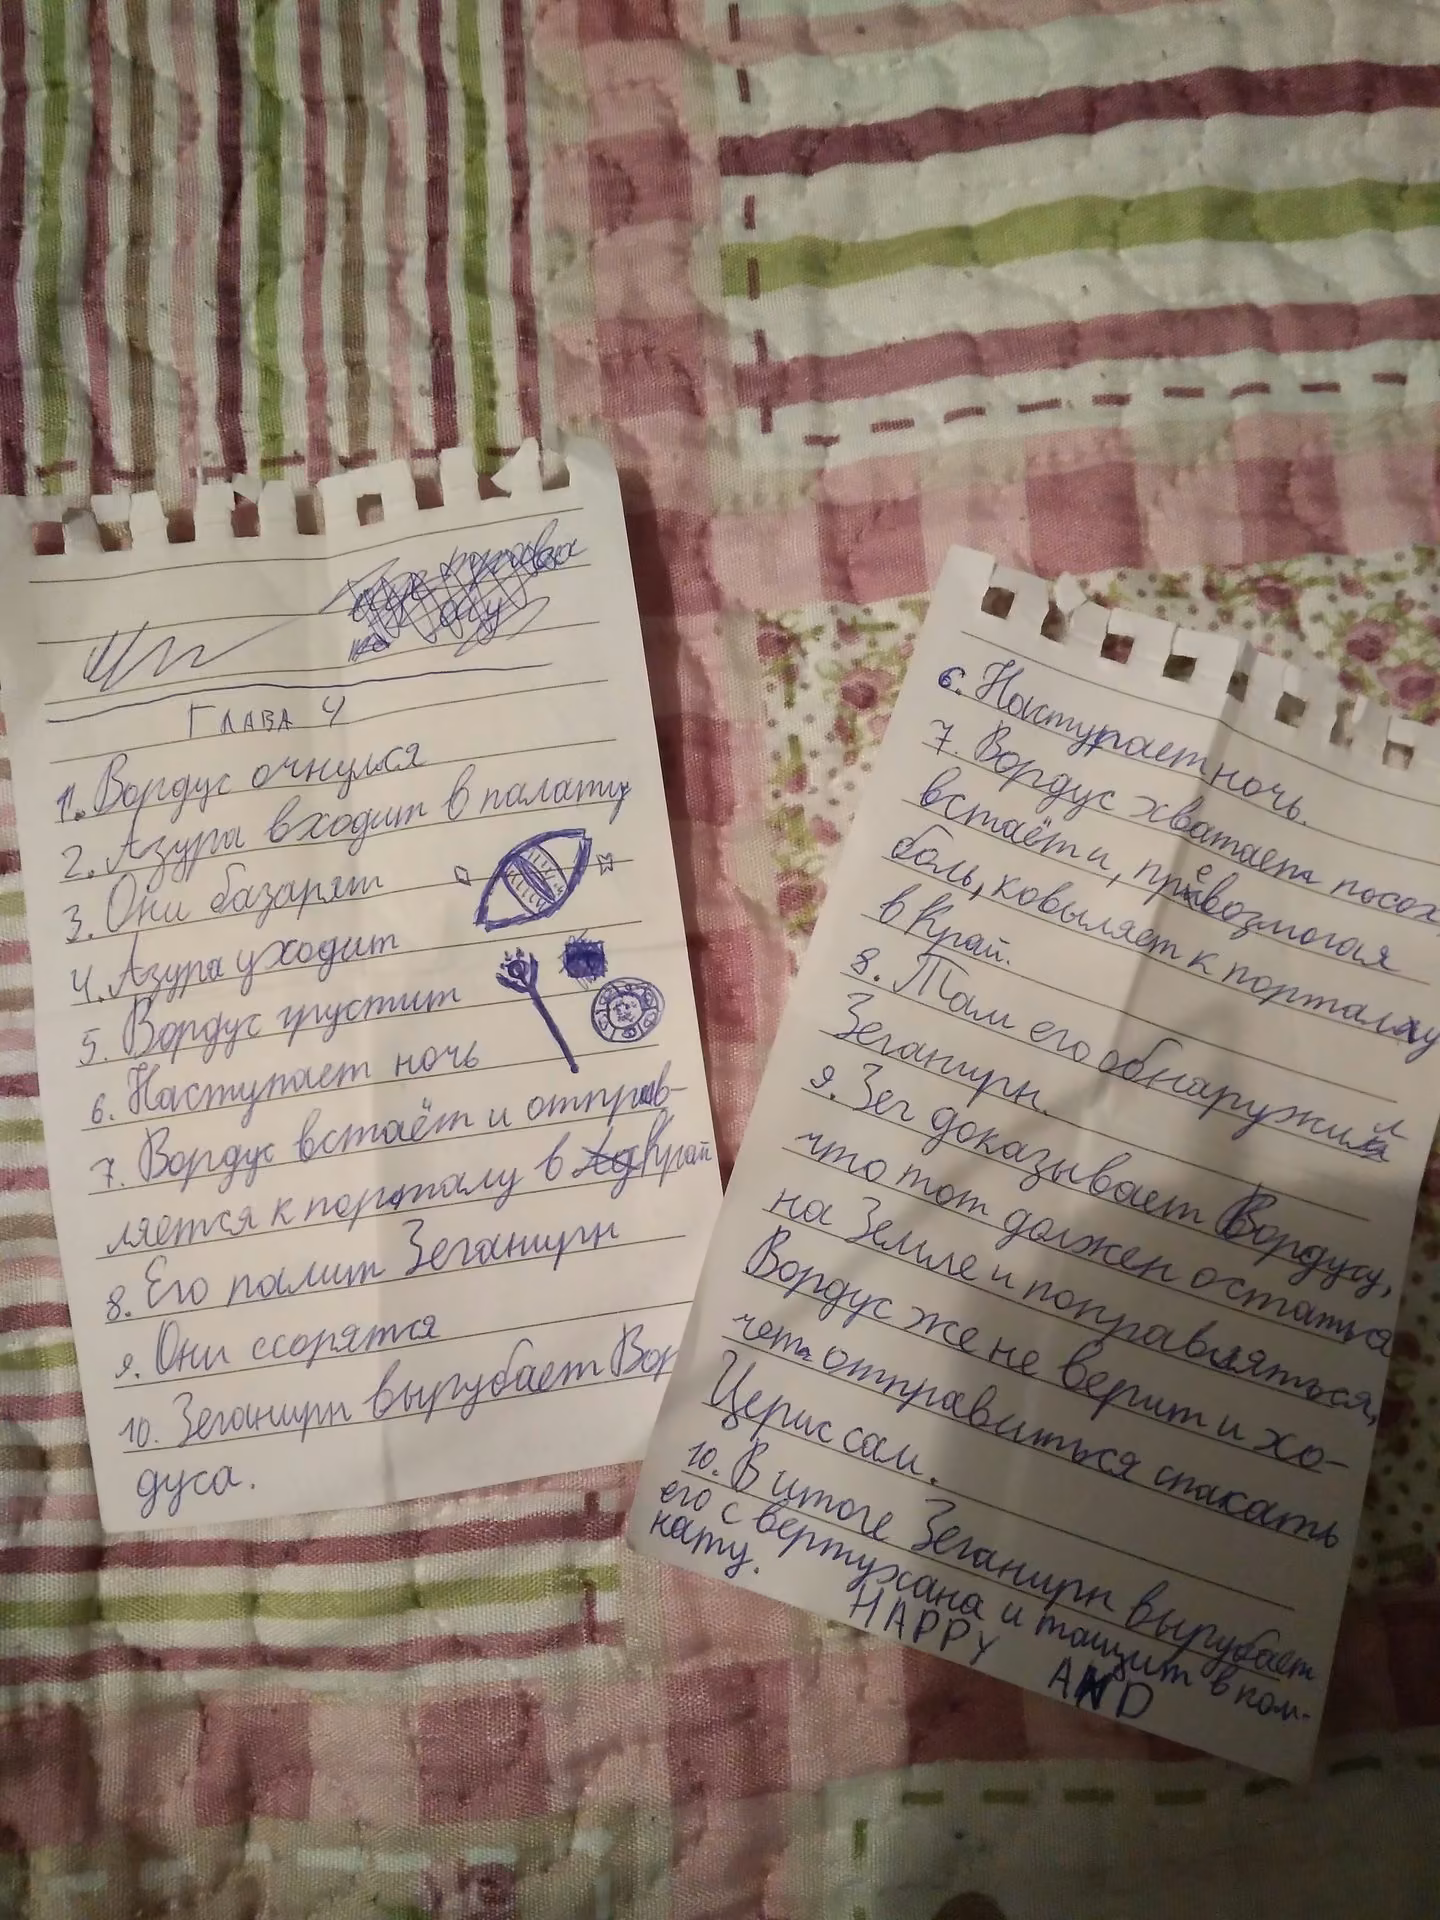 Глава 4
1. Вордус очнулся
2. Азура входит в палату
3. Они базарят
4. Азура уходит
5. Вордус грустит
6. Наступает ночь
7. Вордус встаёт и отправ-
ляется к порталу в Край
8. Его палит Зеганирн
9. Они ссорятся
10. Зеганирн вырубает Вор
дуса.
6. Наступает ночь.
7. Вордус хватает посох,
встаёт и, превозмогая
боль, ковыляет к порталу
в Край.
8. Там его обнаружил
Зеганирн.
9. Зег доказывает Вордусу,
что тот должен остаться
на Земле и поправляться,
Вордус же не верит и хо-
чет отправиться спасать
Церис сам.
10. В итоге Зеганирн вырубает
его с вертухана и тащит в ком-
нату.
HAPPY AND